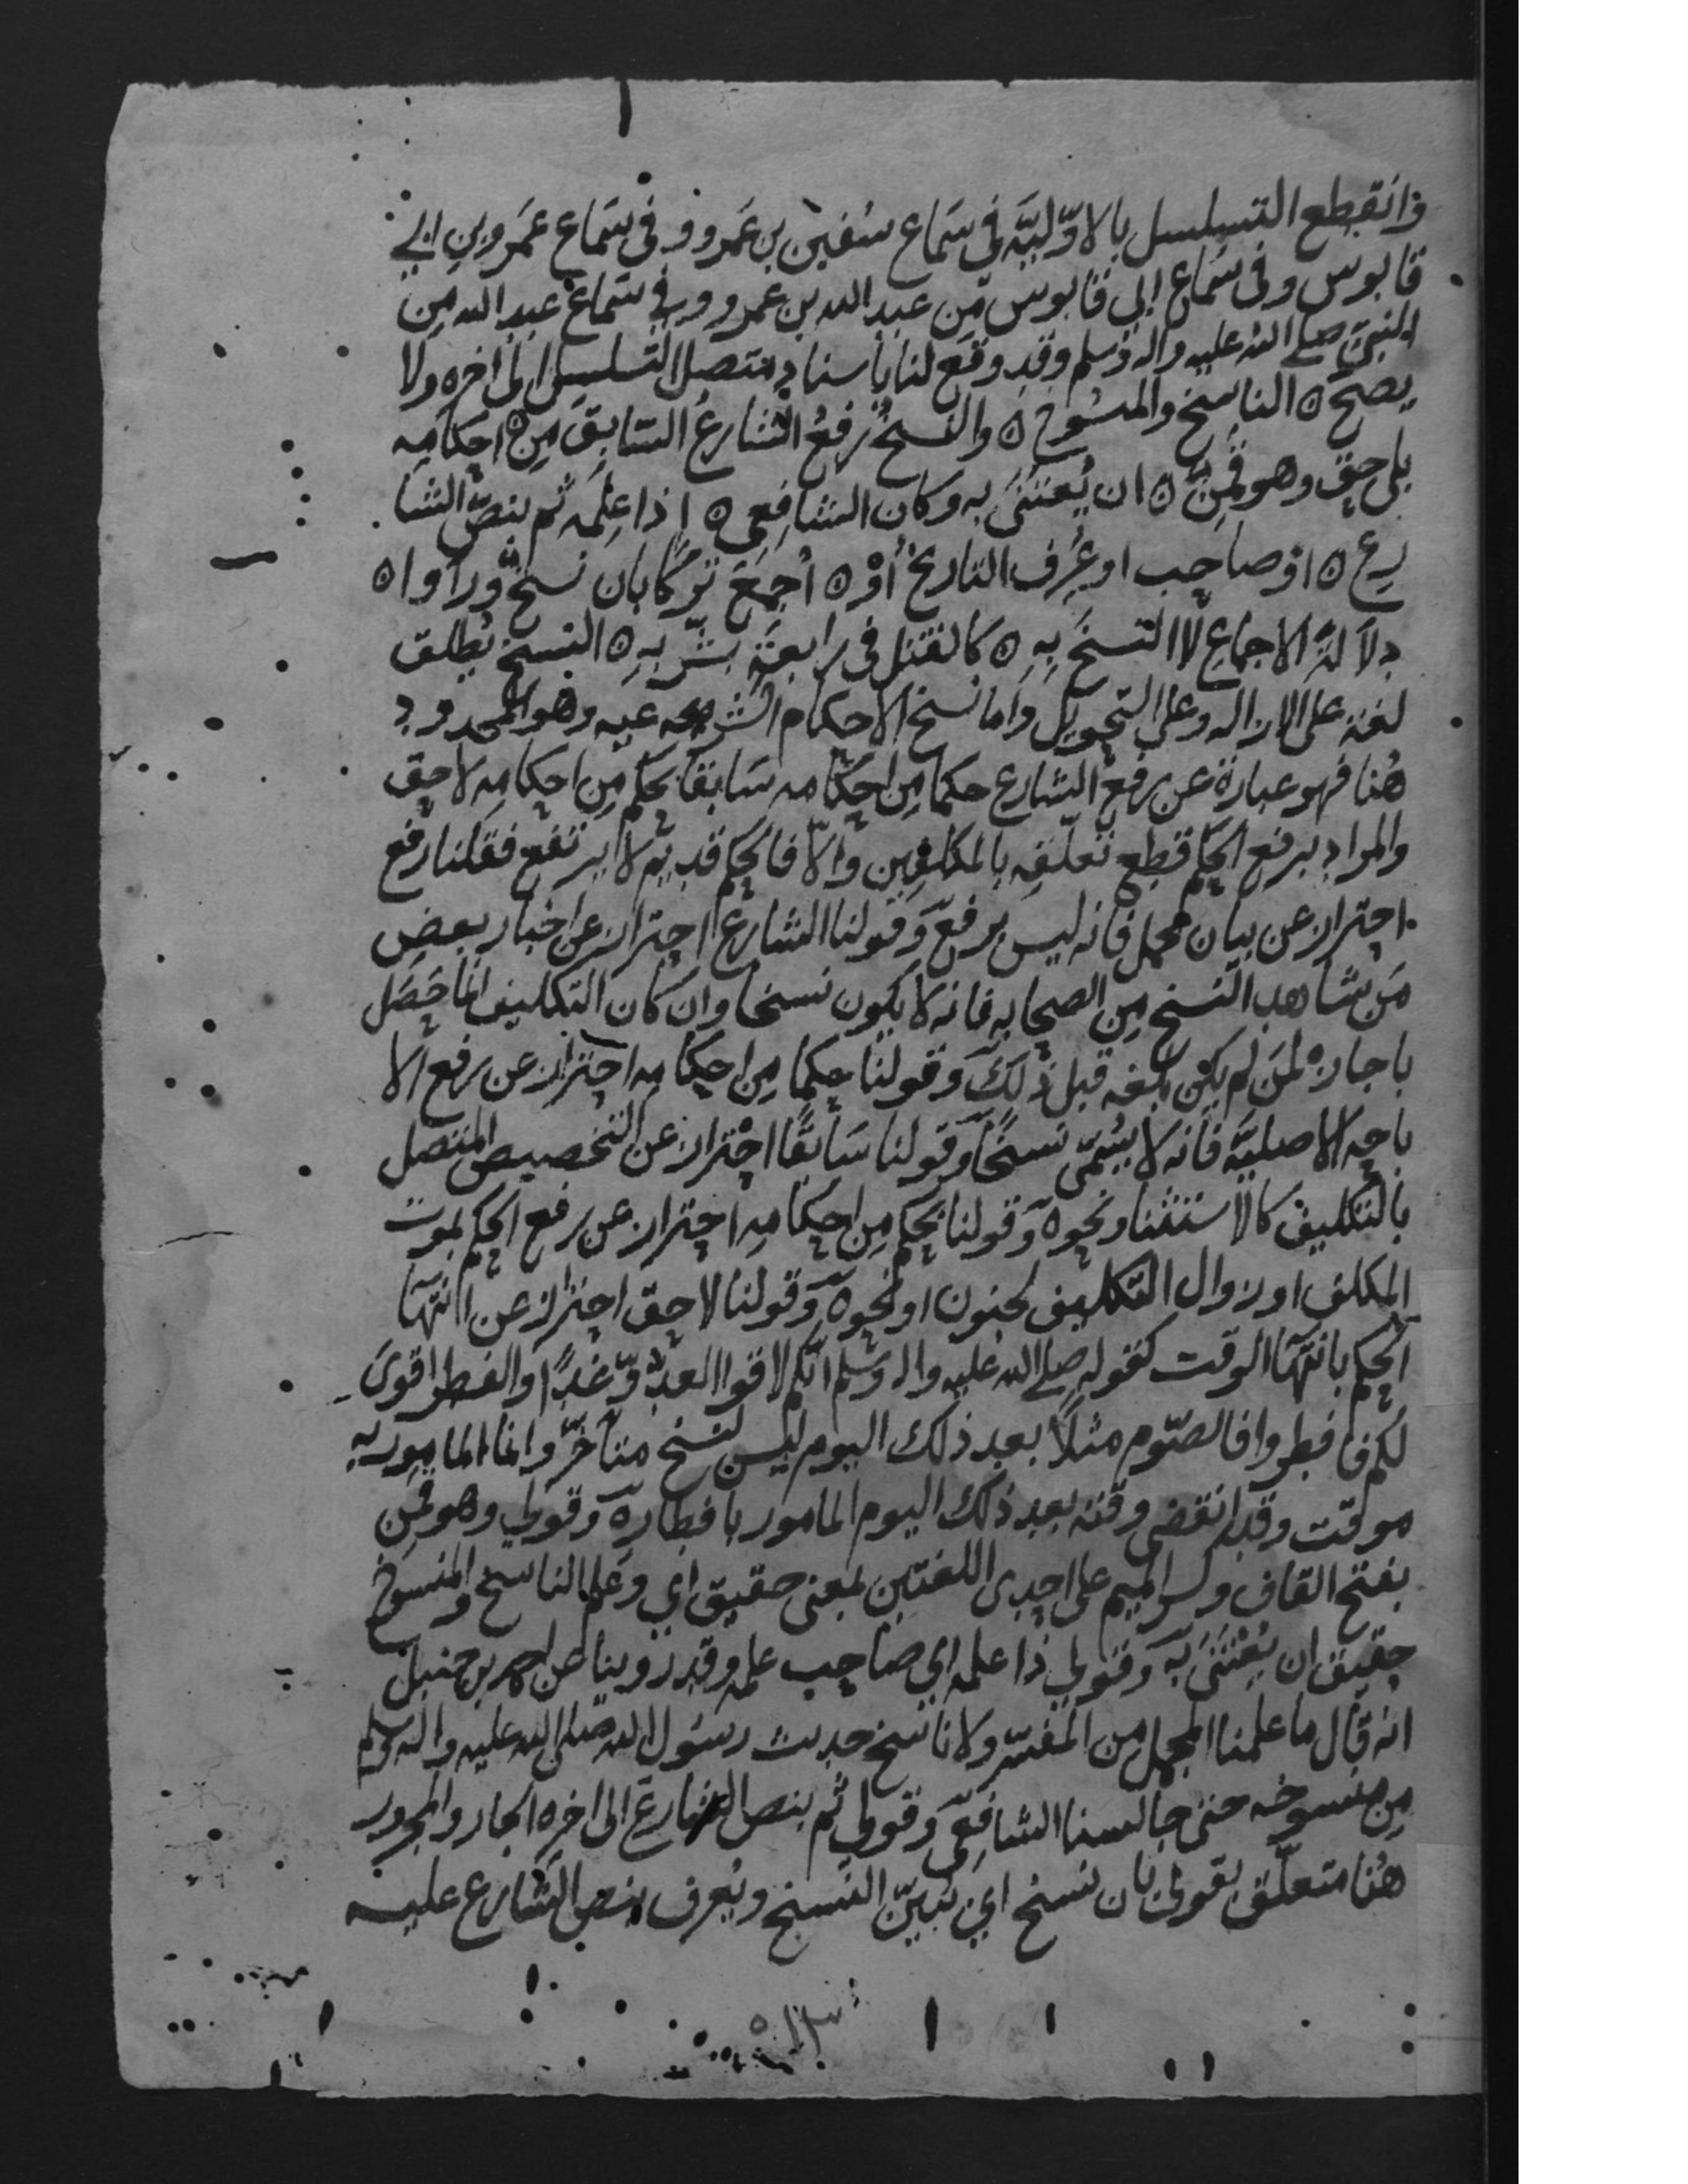 وانقطع التسلسل بالاوّليّه في سَماع سُفين بن عَمرو و في سَماع عَمرو بن ابي
قابوس وفي سَماع ابي قابوس من عبد الله بن عمرو و في سَماع عبد الله من
النبي صلى الله عليه واله وسلم وقد وقع لنا باسناد متصل التسلسل الى اخره ولا
يصح ه الناسخ والمنسُوخ ه والنسخُ رَفعُ الشارعُ السّابِقَ مِن ه احكامِه
بلاحِقٍ وهو قَمِنٌ ه ان يُعتَنىَ به وكان الشافِعي ه إذا عِلمَه ثم بنصّ الشا
رع ه او صاحِب او عُرِف التاريخُ أوْ ه أُجمِعَ تركًا بان نسخٌ ورأوا ه
دِلاَلةَ الاجماع لا النسخَ بِهِ ه كالقتل في رابعَةٍ بشُربهِ ه النسخ يُطلق
لغة على الازاله وعلى التحويل وَاما نسخ الاحكام الشرعيه وهو المحدود
هُنا فهو عبارة عن رفع الشارع حكما مِن احكامه سَابقا بحكم مِن احكامِه لاحق
والمراد برفع الحكم قطع تعلّقه بالمكلفين وَالاّ فالحكم قديم لا يرتفع فقولنا رفع
احتراز عن بيان مجمل فانه ليس برفع وَقولنا الشارع احتراز عن اخبار بعض
مَن شاهد النسخ مِن الصحابه فانه لا يكون نسخا وان كان التكليف انما حَصَل
باخباره لمن لم يكن بلغه قبل ذلك وَقولنا حكما مِن احكامه احتراز عن رفع الا
باحه الاصليَّه فانه لا يُسَمّى نسخًا وَقولنا سَابقًا احتراز عن التخصيص المتصل
بالتكليف كالاستثنا ونحوه وَقولنا بحكم مِن احكامه احتراز عن رفع الحكم بموت
المكلف او زوال التكليف بجنون او نحوه وَقولنا لاحق احتراز عن انتهآ
الحكم بانتهآ الوقت كقوله صلى الله عليه واله وسلم انّكم لاقوا العدُوّ غدًا والفطر اقوى
لكم فافطروا فالصّوم مثلاً بعد ذلك اليوم ليس لنسخ متأخّر وانما المامور به
موقت وقد انقضى وقته بعد ذلك اليوم المامور بافطاره وَقولي وهو قمن
بفتح القاف وكسر الميم على احدى اللغتين بمعنى حقيق اي وعلم الناسخ والمنسوخ
حقيق ان يُعْتَنَى به وَقولي ذا علمه اي صاحِب علمه وقد روينا عن احمد بن حنبل
انه قال ما علمنا المجمل من المفسّر ولا ناسخ حديث رسُول الله صلى الله عليه واله وسلم
مِن منسوخه حتى جالسنا الشافعِيّ وَقولي ثم بنص الشارع الى اخره الجار والمجرور
هُنا متعلّق بقولي بان نسخ اي تبيّن النسخ ويُعرف بنص الشارع عليه